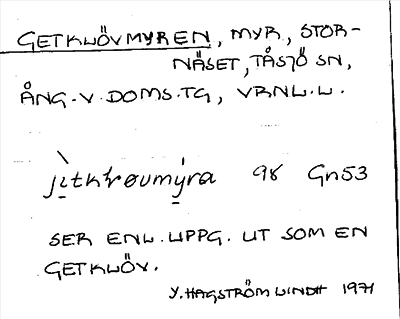 GETKLÖVMYREN, MYR, STOR-
NÄSET, TÅSJÖ SN,
ÅNG. V. DOMS. TG, VRNL. L.
98 Gn53
SER ENL. UPPG. UT SOM EN
GETKLÖV.
Y. HAGSTRÖM LINDH 1971